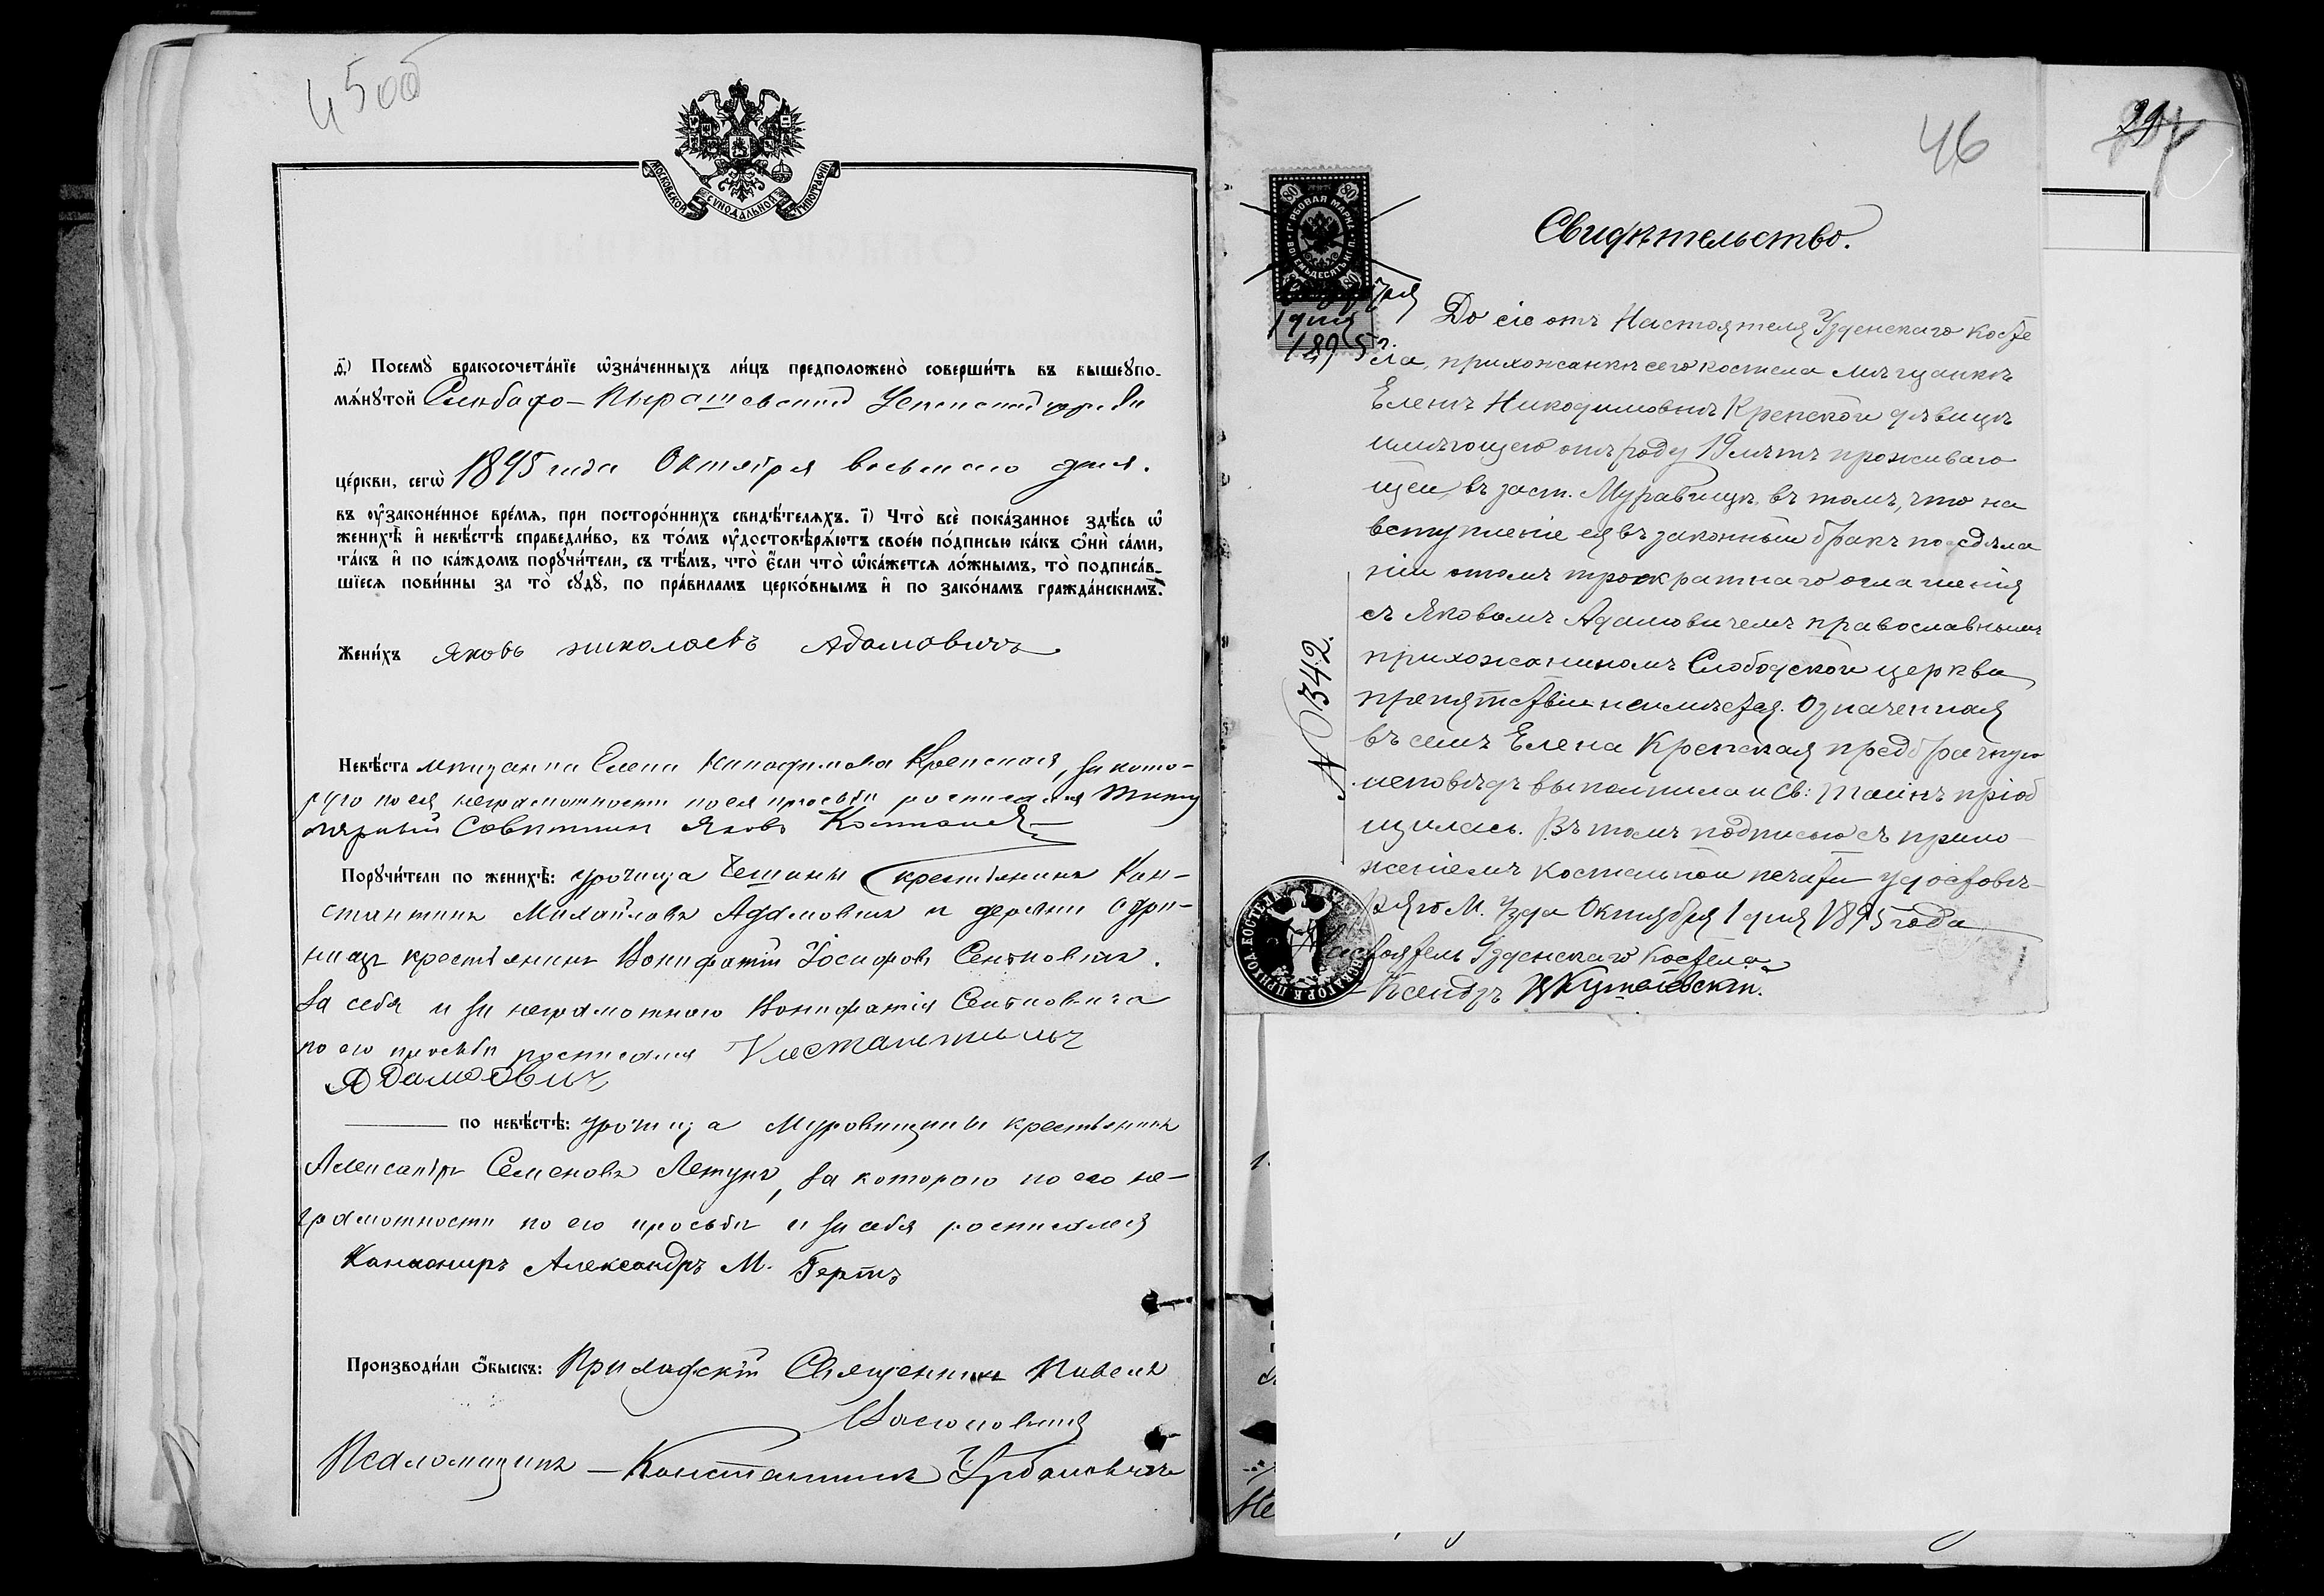 45об
МОСКОВСКОЙ СѴНОДАЛЬНОЙ ТИПОГРАФІИ
Посемꙋ̀ бракосочета́нїе ѡ҆зна́ченныхъ ли́цъ предположено̀ соверши́ть въ вышеꙋпо-
мѧ́нꙋтой Слободо-Пырашевской Успенской
це́ркви, сегѡ̀ 1895 года Октября восьмаго дня.
въ ᲂу҆зако́ненное вре́мѧ, при посторо́ннихъ свидѣ́телѧхъ. і҃) Что̀ всѐ пока́занное здѣ́сь ѡ҆
женихѣ̀ и҆ невѣ́стѣ справедли́во, въ то́мъ ᲂу҆достовѣрѧ́ютъ свое́ю по́дписью ка́къ ѻ҆нѝ са́ми,
та́къ и҆ по ка́ждомъ порꙋчи́тели, съ тѣ́мъ, что̀ є҆́сли что̀ ѡ҆ка́жетсѧ ло́жнымъ, то̀ подписа́в-
шїесѧ пови́нны за то̀ сꙋдꙋ̀, по пра́виламъ церко́внымъ и҆ по зако́намъ гражда́нскимъ.
Жени́хъ Яковъ николаевъ Адамовичъ
Невѣ́ста мѣщанка Елена Никодимова Крепская, за кото-
рую по ея неграмотности по ея просьбѣ росписался Титу
лярный Совѣтникъ Яковъ
Порꙋчи́тели по женихѣ̀: урочища Чешины крестьянинъ Кон-
стантинъ Михайловъ Адамовичъ и деревни
крестьянинъ Вонифатій Іосифовъ Сеньковичъ.
За себя и за неграмотнаго Вонифатія Сеньковича
по его просьбѣ росписался
Адамовичъ
по невѣ́стѣ: урочища Муровищины крестьянинъ
Александръ Семеновъ Летунъ, за котораго по его не-
грамотности по его просьбѣ и за себя росписался
Канониръ Александръ М. Гертъ
Производи́ли ѻ҆́быскъ: Приходскій Священникъ Павелъ
Псаломщикъ – Константинъ Урбановичъ
46
Свидѣтельство.
ГЕРБОВАЯ МАРКА
ВОСЕМЬДЕСЯТЪ КОП.
80
1 дня
1895 г.
Дано сіе отъ Настоятеля Узденскаго косте
ла, прихожанкѣ сего костела мѣщанкѣ
Еленѣ Никодимовнѣ Крепской дѣвицѣ
имѣющею отъ роду 19 лѣтъ проживаю
щей въ заст. Муравищи, въ томъ, что на
вступленіе ея въ законный бракъ по сдѣла
ніи отомъ троекратнаго оглашенія
съ Яковомъ Адамовичемъ православнымъ
прихожаниномъ Слободской церкви
препятствій неимѣется. Означенная
въ семъ Елена Крепская предбрачную
исповѣдь выполнила и Св: Таинъ пріоб
щилась. Въ томъ подписью съ прило-
женіемъ костельной печати удостовѣ-
ряю М. Узда Октября 1 дня 1895 года
Настоятель Узденскаго Костела
Ксендзъ
N 342.